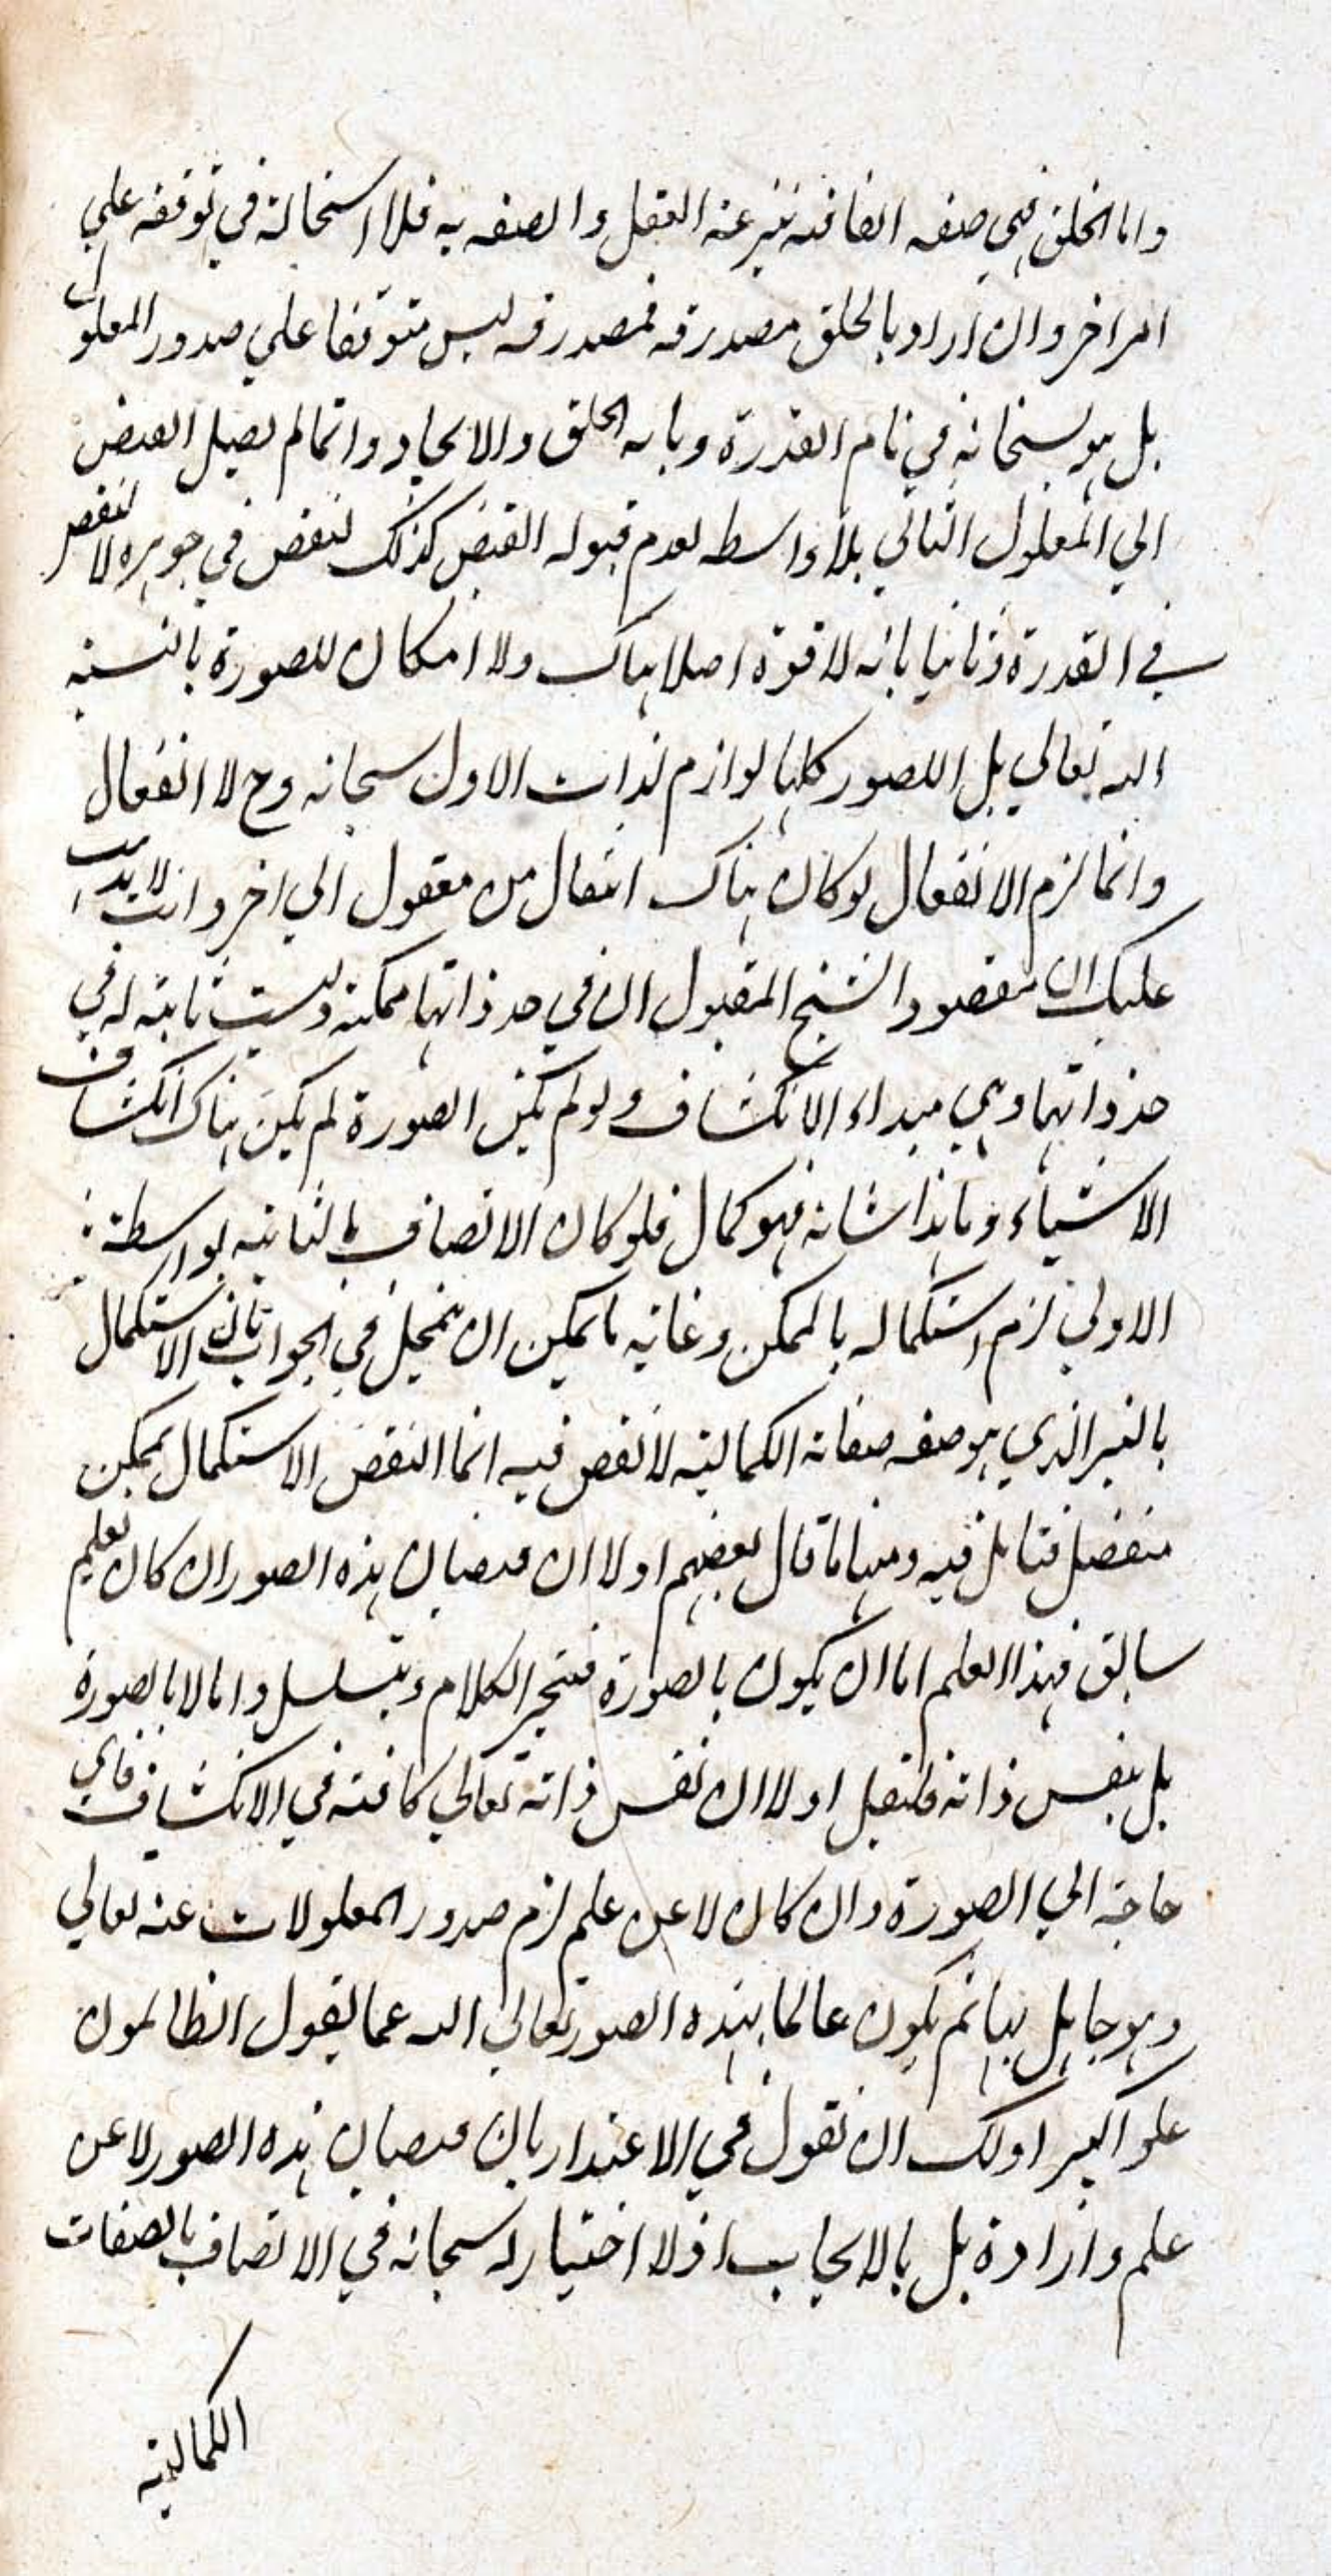 واما الخلق فهي صفه اضافيه يعبر عنه العقل والصفه به فلا استحالة في توقفه علي
امر اخر وان اراد بالخلق مصدرته فمصدرته ليس متوقفا علي صدور المعلول
بل هو سبحانه في تام القدرة وبابه الخلق والايجاد وانما لم يصل الفيض
الي المعلول الثاني بلا واسطه لعدم قبوله الفيض كذلك لنقص في جوهره لا لنقص
في القدرة وثانيا بانه لا قوة اصلا هناك ولا امكان للصورة بالنسبة
اليه تعالي بل اللصور كلها لوازم لذات الاول سبحانه وح لا انفعال
وانما لزم الانفعال لو كان هناك انتقال من معقول الي اخر وانت لا يذهب
عليك ان مقصود الشيخ المقبول ان في حد ذاتها ممكنة وليست ثابتة له في
حد ذاتها وهي مبداء الانكشاف ولو لم يكن الصورة لم يكن هناك انكشاف
الاشياء وما هذا شانه فهو كمال فلو كان الاتصاف بالثانيه بواسطة
الاولي لزم استكماله بالممكن وغايه ما يمكن ان يتمحل في الجواب ان الاستكمال
بالغير الذي هو صفه صفاته الكماليه لا نقص فيه انما النقص الاستكمال بممكن
منفصل فتامل فيه ومنها ما قال بعضهم اولا ان فيضان هذه الصور ان كان بعلم
سابق فهذا العلم اما ان يكون بالصورة فينجر الكلام ويتسلسل واما لا بالصورة
بل بنفس ذاته فليقل اولا ان نفس ذاته تعالي كافيه في الانكشاف فاي
حاجة الي الصورة وان كان لا عن علم لزم صدور المعلولات عنه تعالي
وهو جاهل بها ثم يكون عالما بهذه الصور تعالي الله عما يقول الظالمون
علوا كبيرا ولك ان تقول في الاعتذار بان فيضان هذه الصور لا عن
علم وارادة بل بالايجاب اذ لا اختيار له سبحانه في الاتصاف بالصفات
الكمالية